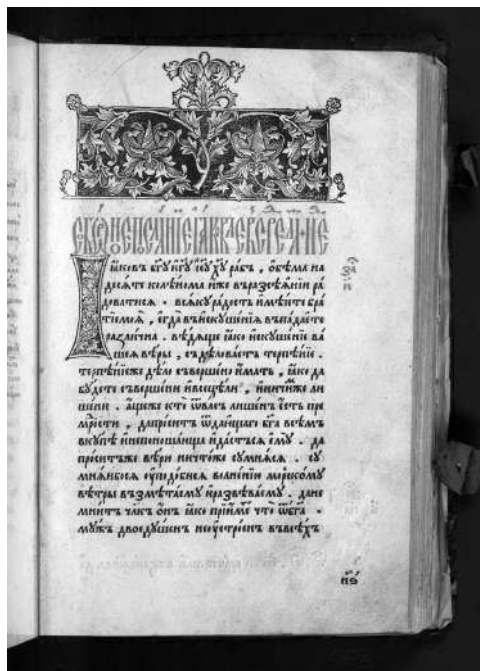 і҆а́ковъ бг҃у и҆гу і҆су ху ра́бъ , ѻ҆бѣ́ма на
десѧте колѣ́нома и҆́же въ разсѣѧ́нїи ра́
доватисѧ · всѧ́ку ра́дость и҆мѣ́йте бра́
тїе моѧ̀ , є҆гда̀ въ и҆скуше́нїѧ впа́даете
разли́чна . вѣ́дѧще ꙗ҆́ко и҆скуше́нїе ва́
шеѧ вѣ́ры , съдѣ́ловаетъ терпѣ́нїе .
терпѣ́нїе же дѣ́ло съверше́но и҆́мать , ꙗ҆́ко да
бу́дете съверше́ни и҆ всецѣ́ли , и҆ ни въ чи́мже ли
ше́ни . а҆́ще же кто̀ ѿ ва́съ лише́нъ є҆́сть пре
мрⷣости , да про́ситъ ѿ даю́щаго бг҃а всѣ́мъ
вку́пѣ и҆ не поноша́юща и҆ да́стьсѧ є҆му̀ . да
про́ситъ же вѣ́рꙋ ничто́же сумнѧ́сѧ . су
мнѧ́йбосѧ оу҆подо́бисѧ волне́нїю морско́му
вѣ́тры възмета́ему и҆ развѣва́ему . да не
мни́тъ чл҃къ ѻ҆́нъ ꙗ҆́ко прїи́метъ что̀ ѿ бг҃а .
му́жъ двоеду́шенъ неу҆стро́енъ въ всѣ́хъ